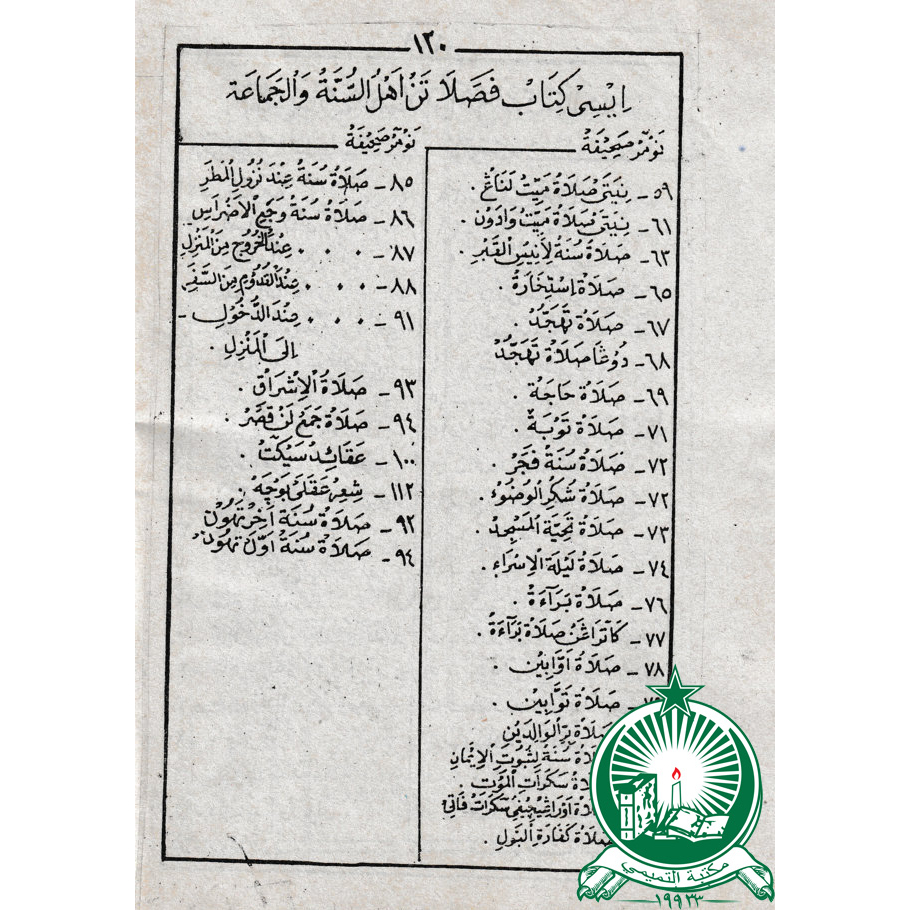 ١٢٠
اِيْسِيْ كِتَابْ فَصَلَا تَنْ اَهْلُ السُّنَّةُ وَالْجَمَاعَة
نَوْمَرْ صَحِيْفَةْ
٥٩ - نِيَتَيْ صَلَاةُ مَيِّتْ لَنَاڠْ .
٦١ - نِيَتَيْ صَلَاةُ مَيِّتْ وَادَوْنْ .
٦٣ - صَلَاةُ سُنَةْ لِأَنِيْسِ الْقَبْرِ .
٦٥ - صَلَاةُ اِسْتِخَارَةْ .
٦٧ - صَلَاةُ تَهَجُّدْ .
٦٨ - دُوڠَا صَلَاةُ تَهَجُّدْ
٦٩ - صَلَاةُ حَاجَةْ .
٧١ - صَلَاةُ تَوْبَةْ .
٧٢ - صَلَاةُ سُنَةْ فَجَرْ .
٧٢ - صَلَاةُ شُكْرِ الْوُضُوْءْ .
٧٣ - صَلَاةُ تَحِيَّةِ الْمَسْجِدْ .
٧٤ - صَلَاةُ لَيْلَةِ الْاِسْرَاءِ .
٧٦ - صَلَاةُ بَرَآءَةْ .
٧٧ - كَاتَرَاڠَنْ صَلَاةُ بَرَآءَةْ .
٧٨ - صَلَاةُ اَوَّابِيْن .
صَلَاةُ تَوَّابِيْن .
صَلَاةُ بِرِّ الْوَالِدَيْنِ
سُنَةْ لِثُبُوْتِ الْاِيْمَانِ
سَكَرَاتِ الْمَوْتِ
سَكَرَاتْ
صَلَاةُ كَفَارَةِ الْبَوْلِ .
نَوْمَرْ صَحِيْفَةْ
٨٥ - صَلَاةُ سُنَةُ عِنْدَ نُزُوْلِ الْمَطَرِ
٨٦ - صَلَاةُ سُنَةُ وَجَعِ الْاَضْرَاسِ
٨٧ - . . . عِنْدَ الْخُرُوْجِ مِنَ الْمَنْزِلِ
٨٨ - . . . عِنْدَ الْقُدُوْمِ مِنَ السَّفَرِ
٩١ - . . . عِنْدَ الدُّخُوْلِ -
اِلَى الْمَنْزِلِ .
٩٣ - صَلَاةُ الْاِشْرَاقْ .
٩٤ - صَلَاةُ جَمَعْ لَنْ قَصَرْ .
١٠٠ - عَقَائِدْ سَيْكَتْ
١١٢ - شِعِرْ عَقَلَيْ بَوْچَهْ .
٩٢ - صَلَاةُ سُنَةْ اَخِرْ تَهُوْنْ
٩٤ - صَلَاةُ سُنَةْ اَوَّلْ تَهُوْنْ
مكتبة التميمي
١٩٩٣٣